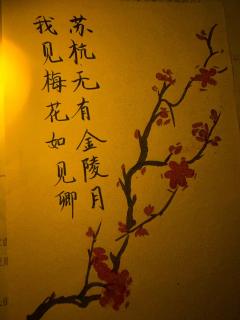 苏杭无有金陵月
我见梅花如见卿